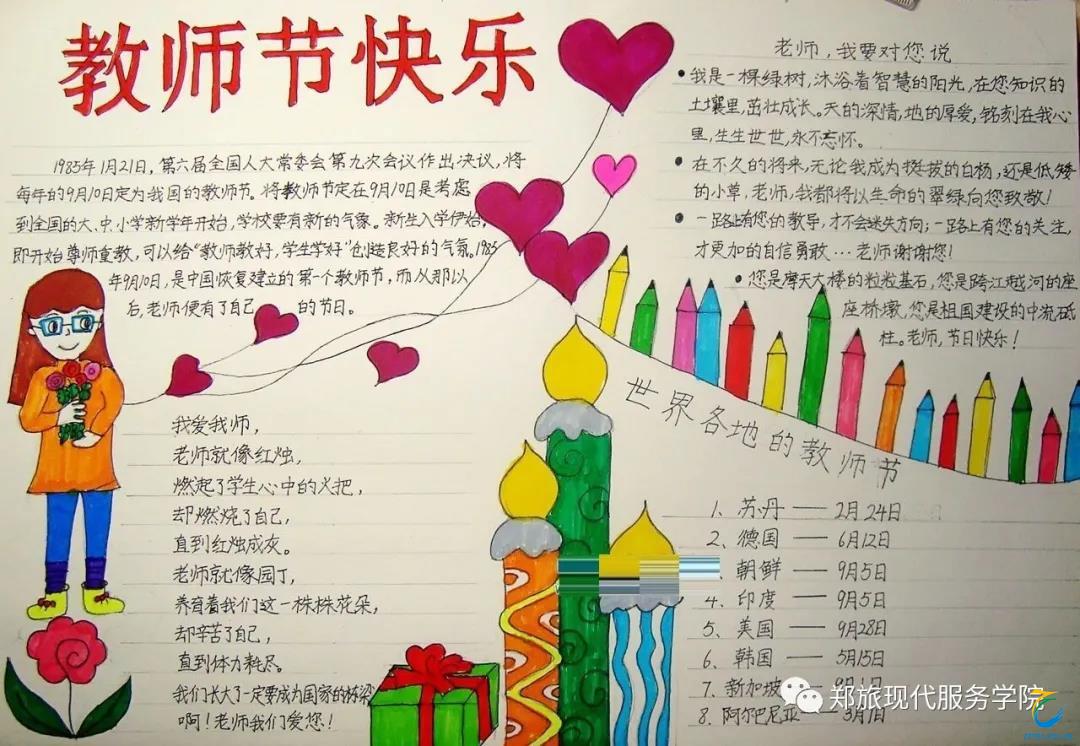 教师节快乐
1985年1月21日,第六届全国人大常委会第九次会议作出决议,将
每年的9月10日定为我国的教师节。将教师节定在9月10日是考虑
到全国的大、中、小学新学年开始,学校要有新的气象。新生入学伊始,
即开始尊师重教,可以给“教师教好,学生学好”创造良好的气氛。1985
年9月10日,是中国恢复建立的第一个教师节,而从那以
后,老师便有了自己的节日。
我爱我师,
老师就像红烛,
燃起了学生心中的火把,
却燃烧了自己,
直到红烛成灰。
老师就像园丁,
养育着我们这一株株花朵,
却辛苦了自己,
直到体力耗尽。
我们长大了一定要成为国家的栋梁
啊!老师我们爱您!
老师,我要对您说
•我是一棵绿树,沐浴着智慧的阳光,在您知识的
土壤里,茁壮成长。天的深情,地的厚爱,铭刻在我心
里,生生世世,永不忘怀。
•在不久的将来,无论我成为挺拔的白杨,还是低矮
的小草,老师,我都将以生命的翠绿向您致敬!
•一路上有您的教导,才不会迷失方向;一路上有您的关注,
才更加的自信勇敢…老师谢谢您!
•您是摩天大楼的粒粒基石,您是跨江越河的座
座桥墩,您是祖国建设的中流砥
柱。老师,节日快乐!
世界各地的教师节
1、苏丹——2月24日
2、德国——6月12日
、朝鲜——9月5日
4、印度——9月5日
5、美国——9月28日
6、韩国——5月15日
7、新加坡——9月1日
8、阿尔巴尼亚——3月7日
郑旅现代服务学院